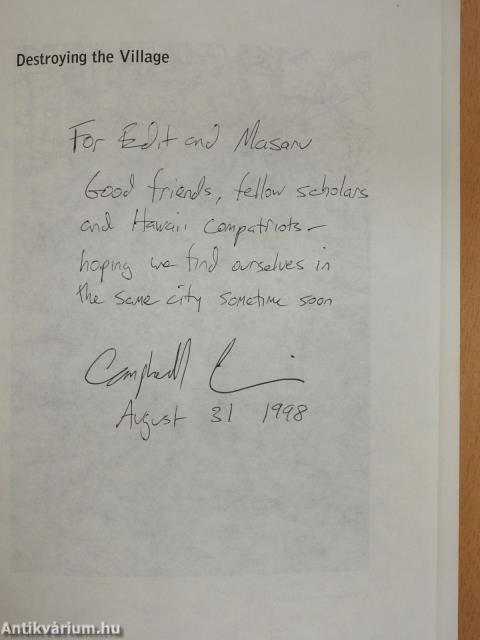 Destroying the Village
For Edit and Masaru
Good friends, fellow scholars
and Hawaii compatriots –
hoping we find ourselves in
the same city sometime soon
Campbell
August 31 1998
Antikvárium.hu